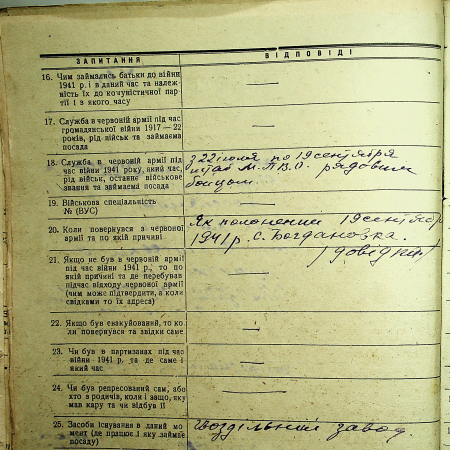 ЗАПИТАННЯ
ВІДПОВІДІ
16. Чим займались батьки до війни
1941 р. і в даний час та належ-
ність їх до комуністичної пар-
тії і з якого часу
17. Служба в червоній армії під час
громадянської війни 1917 — 22
років, рід військ та займаєма
посада
18. Служба в червоній армії під
час війни 1941 року, який час,
рід військ, останнє військове
звання та займаєма посада
з 22 июля по 19 сентября
штаб М.П.В.О. рядовим
бойцом.
19. Військова спеціяльність
№ (ВУС)
20. Коли повернувся з червоної
армії та по якій причині
Як полонений 19 сентября
1941 р. С. Богдановка.
(довідка)
21. Якщо не був в червоній армії
під час війни 1941 р., то по
якій причині та де перебував
підчас відходу червоної армії
(чим може підтвердити, а коли
свідками то їх адреса)
22. Якщо був евакуйований, то ко-
ли повернувся та звідки саме
23. Чи був в партизанах під час
війни 1941 р. та де саме і
який час
24. Чи був репресований сам, або
хто з родичів, коли і защо, яку
мав кару та чи відбув її
25. Засоби існування в даний мо-
мент (де працює і яку займає
посаду)
Гвоздільний завод.